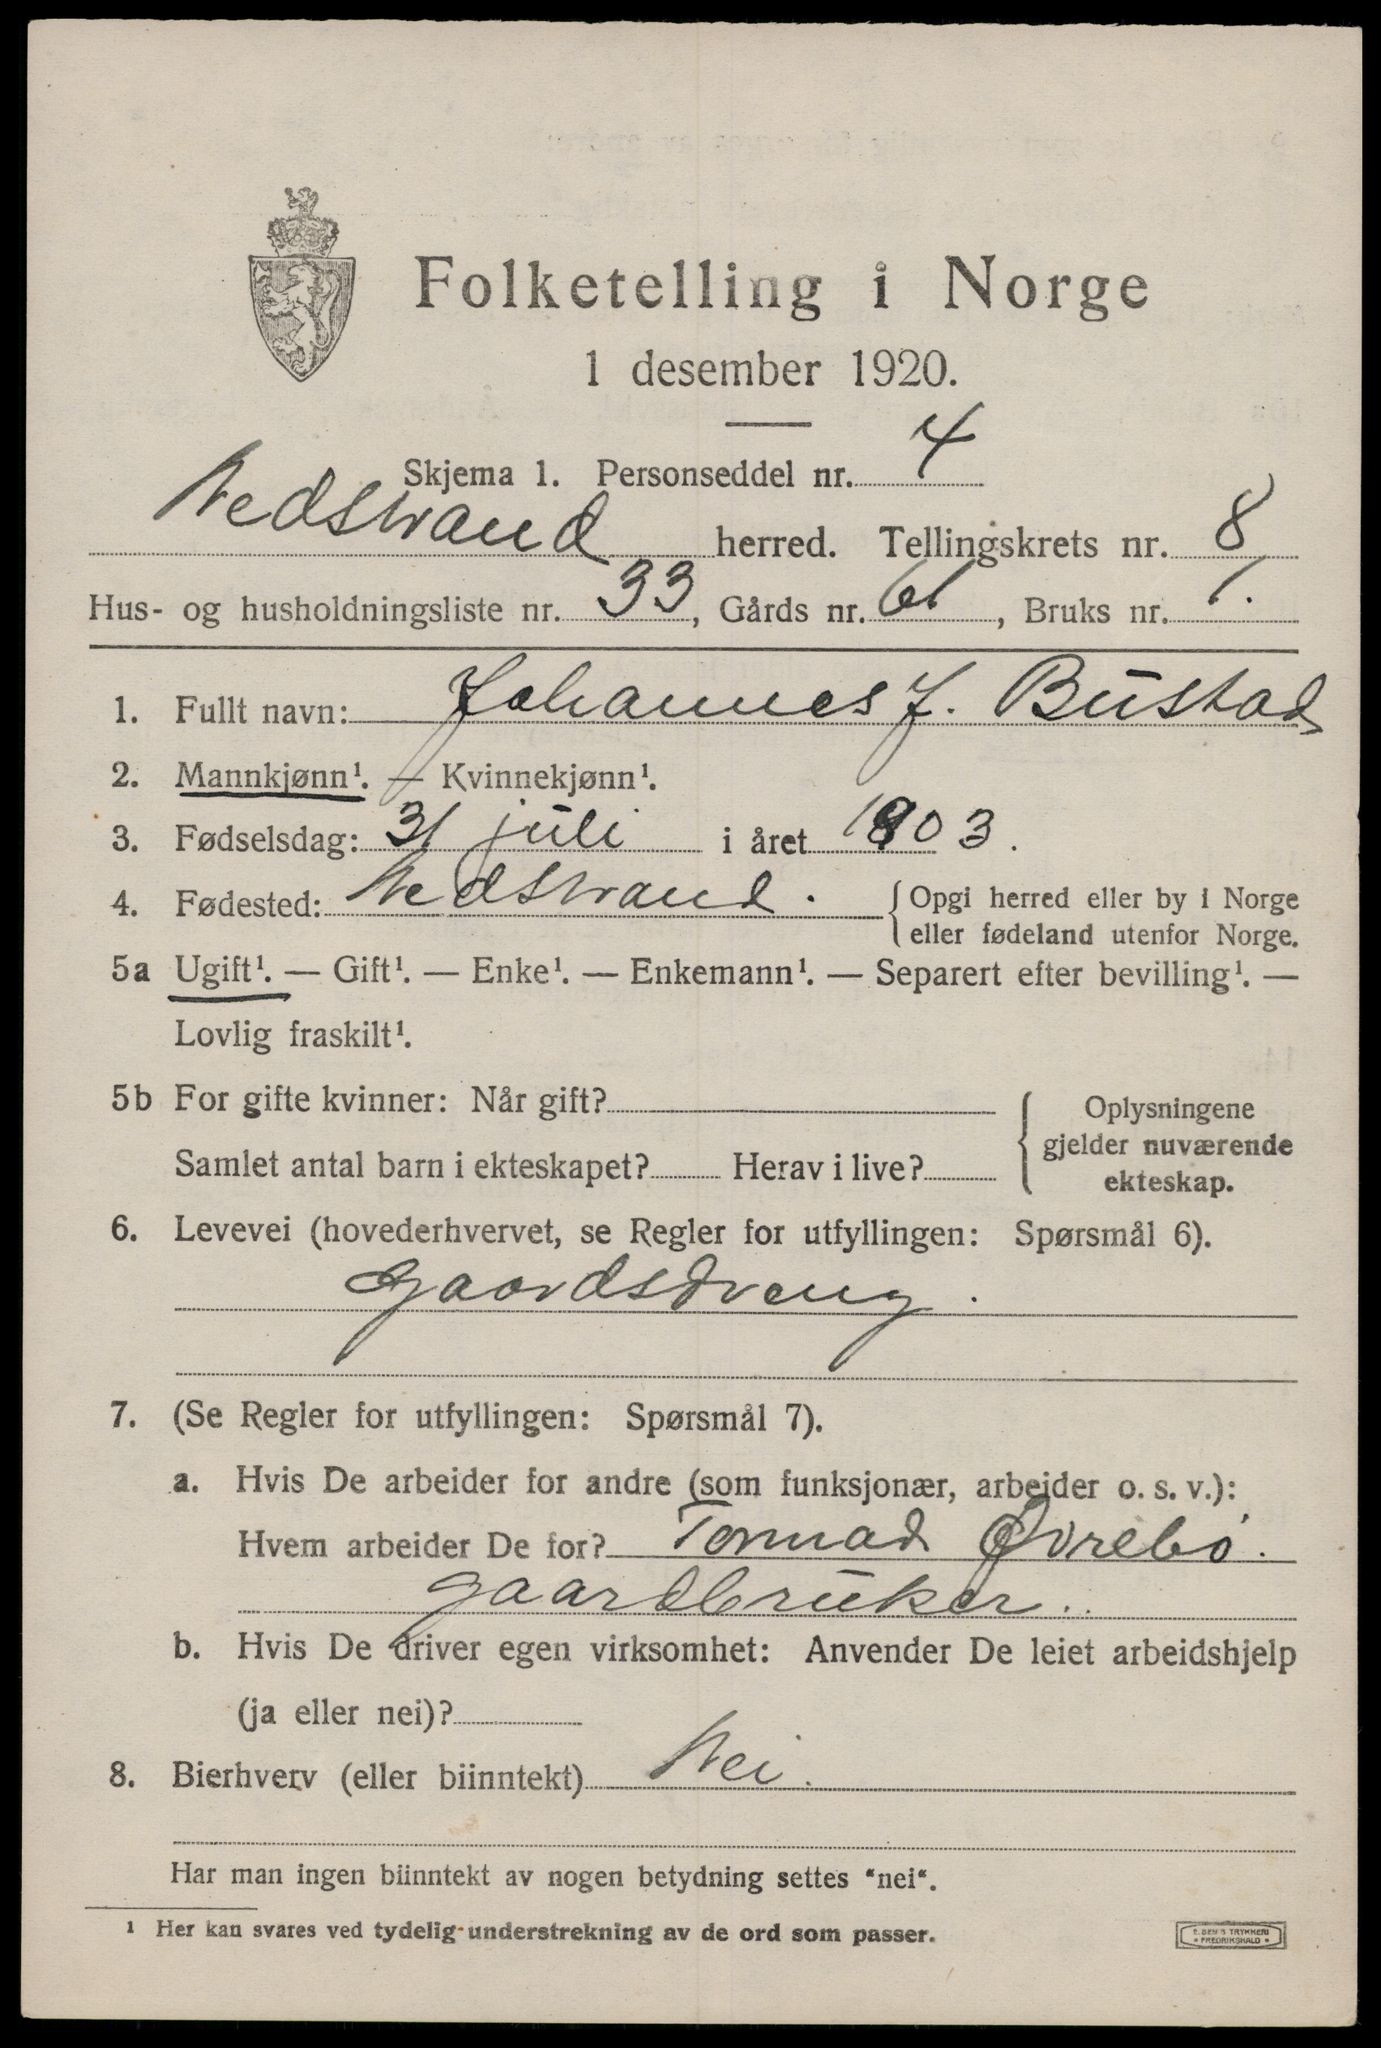 Folketelling i Norge
1 desember 1920.
Skjema 1. Personseddel nr. 4
Nedstrand herred. Tellingskrets nr. 8
Hus- og husholdningsliste nr. 33, Gårds nr. 61, Bruks nr. 1.
1. Fullt navn: Johannes J. Bustad
2. Mannkjønn¹. — Kvinnekjønn¹.
3. Fødselsdag: 31 juli i året 1903.
4. Fødested: Nedstrand. { Opgi herred eller by i Norge
eller fødeland utenfor Norge.
5a Ugift¹. — Gift¹. — Enke¹. — Enkemann¹. — Separert efter bevilling¹. —
Lovlig fraskilt¹.
5b For gifte kvinner: Når gift?
Samlet antal barn i ekteskapet? Herav i live?
{ Oplysningene
gjelder nuværende
ekteskap.
6. Levevei (hovederhvervet, se Regler for utfyllingen: Spørsmål 6).
Gaardsdreng.
7. (Se Regler for utfyllingen: Spørsmål 7).
a. Hvis De arbeider for andre (som funksjonær, arbeider o. s. v.):
Hvem arbeider De for? Øvrebø.
gaardbruker.
b. Hvis De driver egen virksomhet: Anvender De leiet arbeidshjelp
(ja eller nei)?
8. Bierhverv (eller biinntekt) Nei.
Har man ingen biinntekt av nogen betydning settes "nei".
¹ Her kan svares ved tydelig understrekning av de ord som passer.
TRYKKERI
FREDRIKSHALD